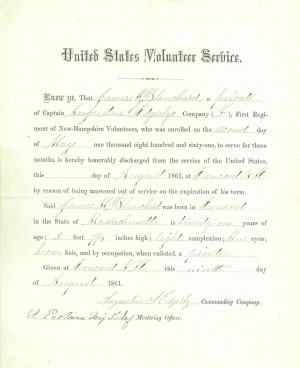 United States Volunteer Service.
Know ye, That James H. Blanchard a private
of Captain Augustus S. Edgerly Company (F), First Regi-
ment of New-Hampshire Volunteers, who was enrolled on the second day
of May one thousand eight hundred and sixty-one, to serve for three
months, is hereby honorably discharged from the service of the United States,
this day of August 1861, at Concord N.H.
by reason of being mustered out of service on the expiration of his term.
Said James H. Blanchard was born in Concord
in the State of Massachusetts is twenty one years of
age; 5 feet 7¾ inches high; light complexion; blue eyes;
brown hair, and by occupation, when enlisted, a printer
Given at Concord N.H. this ninth day
of August 1861.
Augustus S. Edgerly Commanding Company.
S. Eastman Mustering Officer.